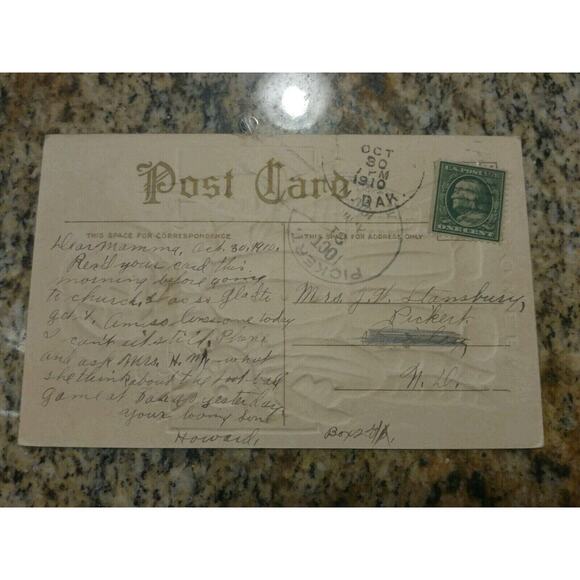 Post Card
OCT
30
PM
1910
DAK.
U.S. POSTAGE
ONE CENT
THIS SPACE FOR CORRESPONDENCE
THIS SPACE FOR ADDRESS ONLY
PICKER
OCT
31
Dear Mamma, Oct. 30, 1910.
Rec'd your card this
morning before going
to church, & was so glad to
get it. Am so lonesome today
I can't sit still.
and ask Mrs. H. M. what
she think about the foot ball
game at yesterday
your loving Son
Howard.
Mrs. J. H. Stansbury,
Pickert
N. D.
Box